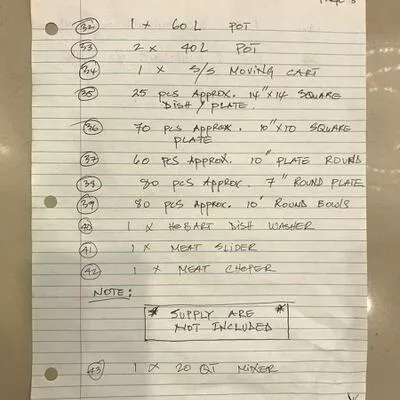 32 1 x 60 L POT
33 2 x 40 L POT
34 1 x S/S MOVING CART
35 25 pcs APPROX. 14"x14 SQUARE
DISH / PLATE.
36 70 pcs APPROX. 10"x10 SQUARE
PLATE
37 60 pcs APPROX. 10" PLATE ROUND
38 80 pcs APPROX. 7" ROUND PLATE
39 80 pcs APPROX. 10" ROUND BOWLS
40 1 x HOBART DISH WASHER
41 1 x MEAT SLIDER
42 1 x MEAT CHOPER
NOTE:
* SUPPLY ARE *
NOT INCLUDED
43 1 x 20 QT MIXER